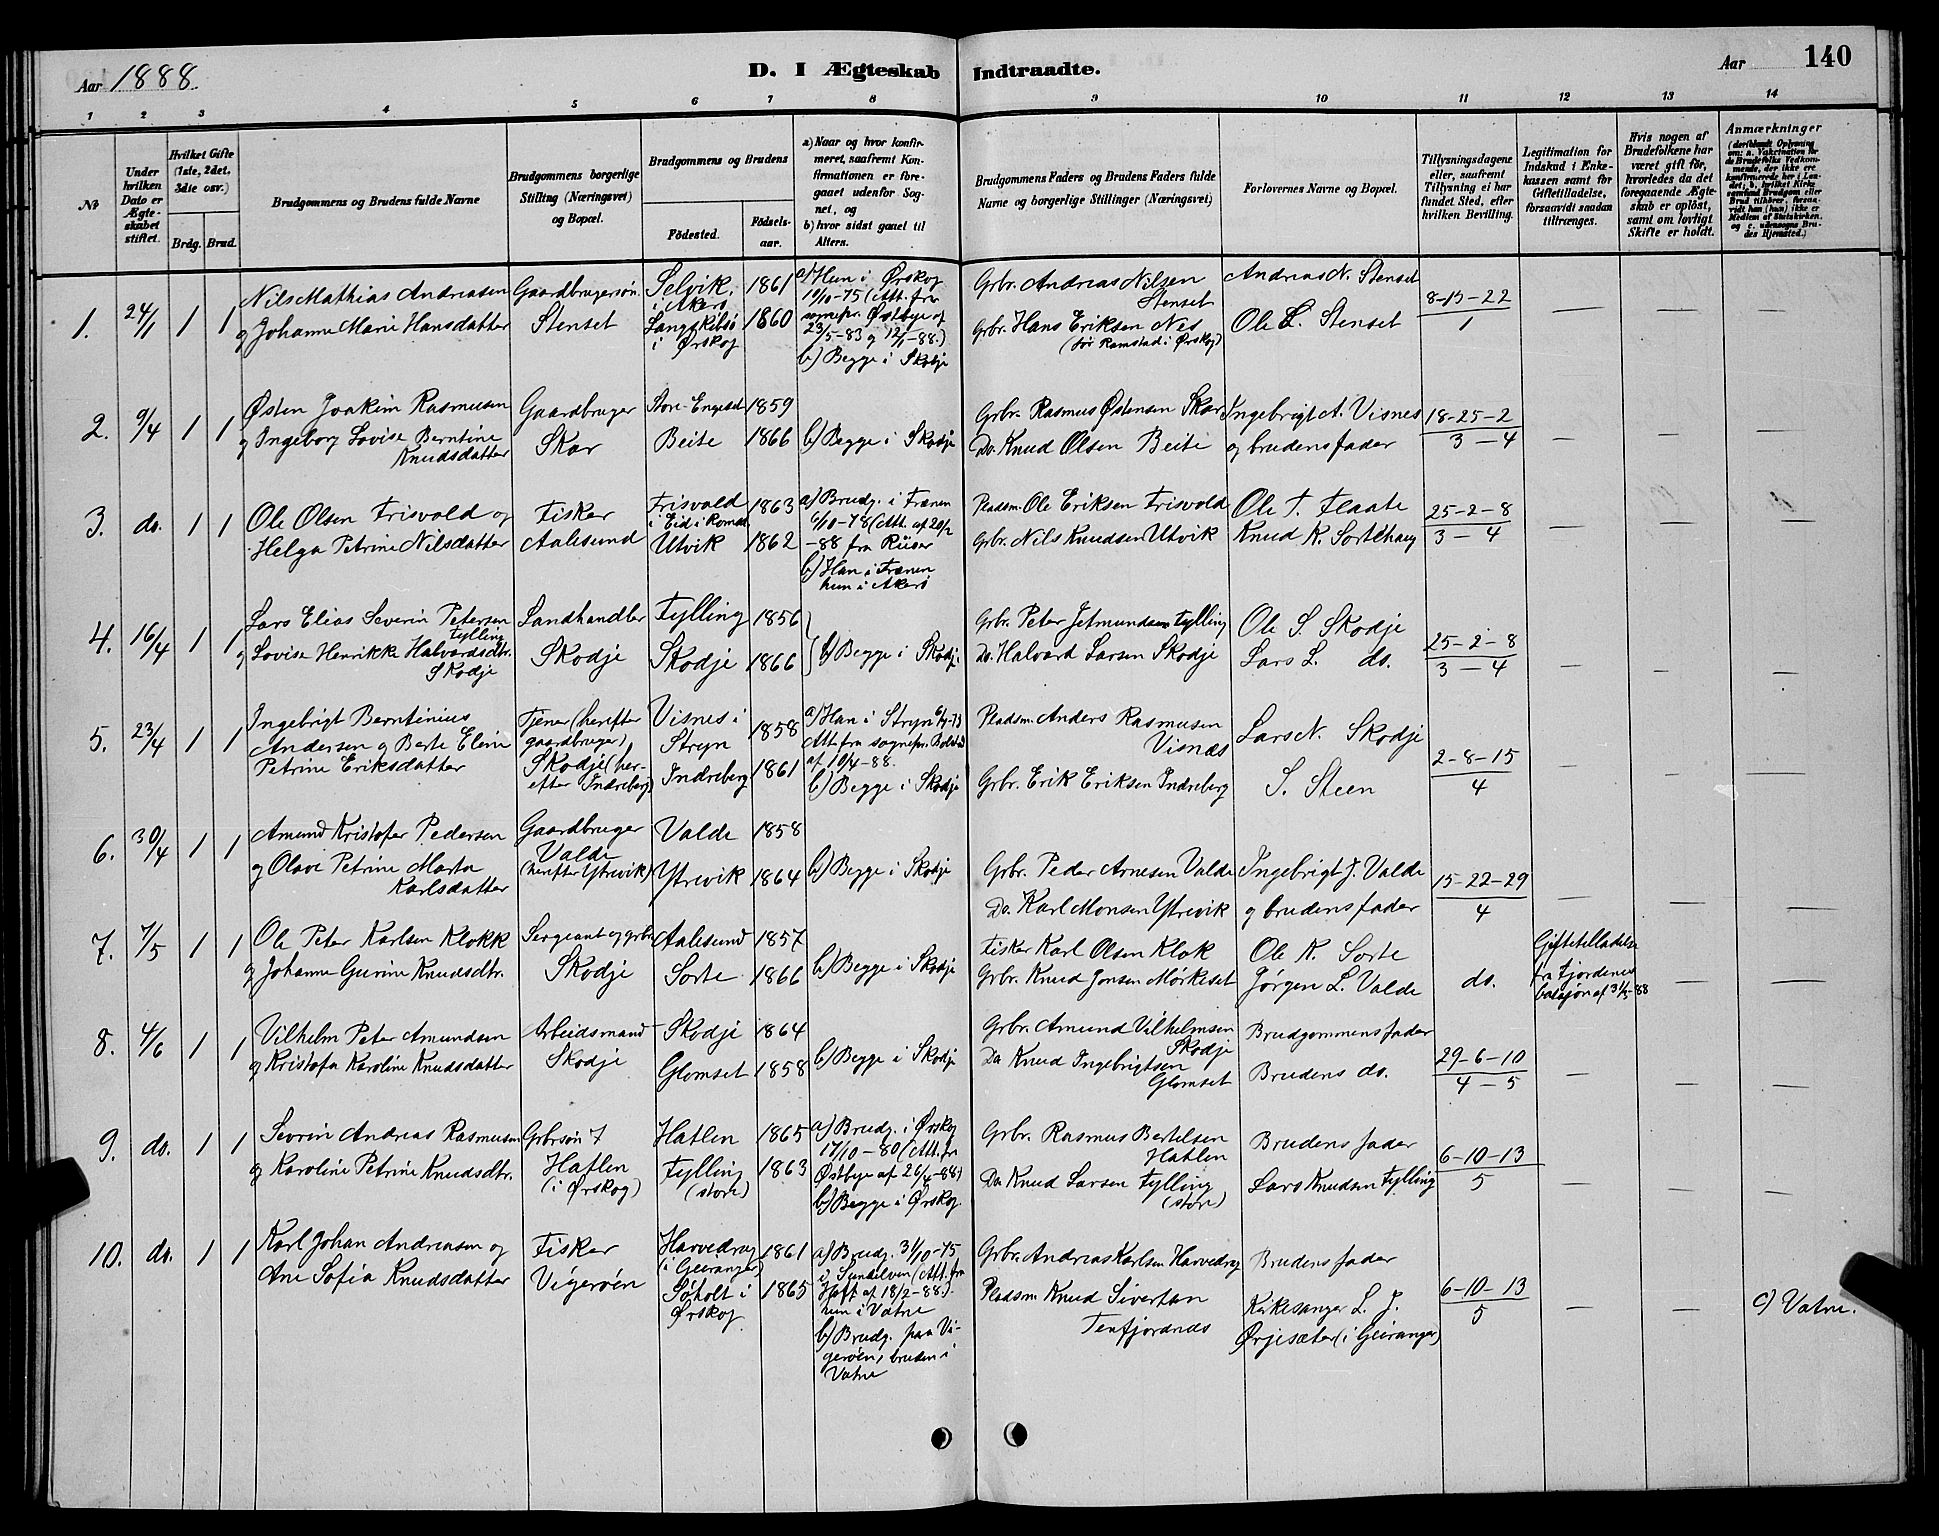 Aar 1888.
D. I Ægteskab Indtraadte.
Aar 140
1 2 3 4 5 6 7 8 9 10 11 12 13 14
No
Under hvilken Dato er Ægteskabet stiftet.
Hvilket Gifte (1ste, 2det, 3die osv.)
Brdg. Brud.
Brudgommens og Brudens fulde Navne
Brudgommens borgerlige Stilling (Næringsvei) og Bopæl.
Brudgommens og Brudens
Födested. Födsels-aar.
a) Naar og hvor konfirmeret, saafremt Konfirmationen er foregaaet udenfor Sognet, og
b) hvor sidst gaaet til Alters.
Brudgommens Faders og Brudens Faders fulde Navne og borgerlige Stillinger (Næringsvei)
Forlovernes Navne og Bopæl.
Tillysningsdagene eller, saafremt Tillysning ei har fundet Sted, efter hvilken Bevilling.
Legitimation for Indskud i Enkekassen samt for Giftetilladelse, forsaavidt saadan tiltrænges.
Hvis nogen af Brudefolkene har været gift för, hvorledes da det foregaaende Ægteskab er oplöst, samt om lovligt Skifte er holdt.
Anmærkninger (deriblandt Oplysning om: a. Vakcination for de Brudefolks Vedkommende, der ikke ere konfirmerede her i Landet; b. hvilket Kirkesamfund Brudgom eller Brud tilhörer, forsaavidt han (hun) ikke er Medlem af Statskirken, og c. udensogns Brudes Hjemsted.)
1. 24/1 1 1
Nils Mathias Andreasen
og Johanne Marie Hansdatter
Gaardbrugersön
Stenset
Selvik, i Akerö 1861
Langskibsö i Ørskog 1860
a) Hun i Ørskog
10/10-75 (Att. fra
sognepr. Østbye af
23/5-83 og 12/1-88.)
b) Begge i Skodje
Grbr. Andreas Nilsen
Stenset
Grbr. Hans Eriksen Nes
(för Ramstad i Ørskog)
Andreas N. Stenset
Ole E. Stenset
8-15-22
1
— — —
2. 9/4 1 1
Østen Joakim Rasmusen
og Ingeborg Lovise Berntine
Knudsdatter
Gaardbruger
Skar
Store-Engeset 1859
Beite 1866
b) Begge i Skodje
Grbr. Rasmus Østensen Skar
Do. Knud Olsen Beite
Ingebrigt A. Visnes
og brudens fader
18-25-2
3 - 4
— — —
3. do. 1 1
Ole Olsen Frisvold og
Helga Petrine Nilsdatter
Fisker
Aalesund
Frisvold i Eid i Romsd. 1863
Utvik 1862
a) Brudg. i Frænen
6/10-78 (Att. af 20/2
-88 fra Riiser
b) Han i Frænen
hun i Akerö
Pladsm. Ole Eriksen Frisvold
Grbr. Nils Knudsen Utvik
Ole T. Flaate
Knud K. Sortehaug
25-2-8
3 - 4
— — —
4. 16/4 1 1
Lars Elias Severin Petersen
Fylling
og Lovise Henrikke Halvardsdtr.
Skodje
Landhandler
Skodje
Fylling 1856
Skodje 1866
b) Begge i Skodje
Grbr. Peter Jetmundsen Fylling
Do. Halvard Larsen Skodje
Ole S. Skodje
Lars L. do.
25-2-8
3 - 4
— — —
5. 23/4 1 1
Ingebrigt Berntinius
Andersen og Berte Eline
Petrine Eriksdatter
Tjener (herefter
gaardbruger)
Skodje (her-
efter Indreberg)
Visnes i
Stryn 1858
Indreberg 1861
a) Han i Stryn
Att. fra sognepr. Bolstad
af 10/4-88.
b) Begge i Skodje
Pladsm. Anders Rasmusen
Visnæs
Grbr. Erik Eriksen Indreberg
Lars N. Skodje
S. Steen
2-8-15
4
— — —
6. 30/4 1 1
Amund Kristofer Pedersen
og Olave Petrine Marta
Karlsdatter
Gaardbruger
Valde
(herefter Ytrevik)
Valde 1858
Ytrevik 1864
b) Begge i Skodje
Grbr. Peder Arnesen Valde
Do. Karl Monsen Ytrevik
Ingebrigt J. Valde
og brudens fader
15-22-29
4
— — —
7. 7/5 1 1
Ole Peter Karlsen Klokk
og Johanne Gurine Knudsdtr.
Sergeant og grbr.
Skodje
Aalesund 1857
Sorte 1866
b) Begge i Skodje
Fisker Karl Olsen Klok
Grbr. Knud Jonsen Mörkeset
Ole K. Sorte
Jörgen L. Valde
do.
Giftetilladelse
fra fjordenes
batajon af 31/3-88
— —
8. 4/6 1 1
Vilhelm Peter Amundsen
og Kristofa Karoline Knudsdatter
Arbeidsmand
Skodje
Skodje 1864
Glomset 1858
b) Begge i Skodje
Grbr. Amund Vilhelmsen
Skodje
Do Knud Ingebrigtsen
Glomset
Brudgommens fader
Brudens do.
29-6-10
4 - 5
— — —
9. do. 1 1
Sevrin Andreas Rasmusen
og Karoline Petrine Knudsdtr.
Grbrsön
Hatlen
(i Ørskog)
Hatlen 1865
Fylling (store) 1863
a) Brudg. i Ørskog
17/10-80 (Att. fr
Østbye af 26/4-88)
b) Begge i Ørskog
Grbr. Rasmus Bertelsen
Hatlen
Do Knud Larsen Fylling
(store)
Brudens fader
Lars Knudsen Fylling
6-10-13
5
— — —
10. do. 1 1
Karl Johan Andreasen og
Ane Sofia Knudsdatter
Fisker
Vigeröen
Harvedrag (i Geiranger) 1861
Söholt i Ørskog 1865
a) Brudg. 31/10-75
i Sunelven (Att. fra
Hoft af 18/2-88.)
hun i Vatne
b) Brudg. paa Vi-
geröen, bruden i
Vatne
Grbr. Andreas Karlsen Harvedrag
Pladsm. Knud Sivertsen
Tenfjordnæs
Brudens fader
Kirkesanger L. J.
Ørjesæter (i Geiranger)
6-10-13
5
— —
c) Vatne.